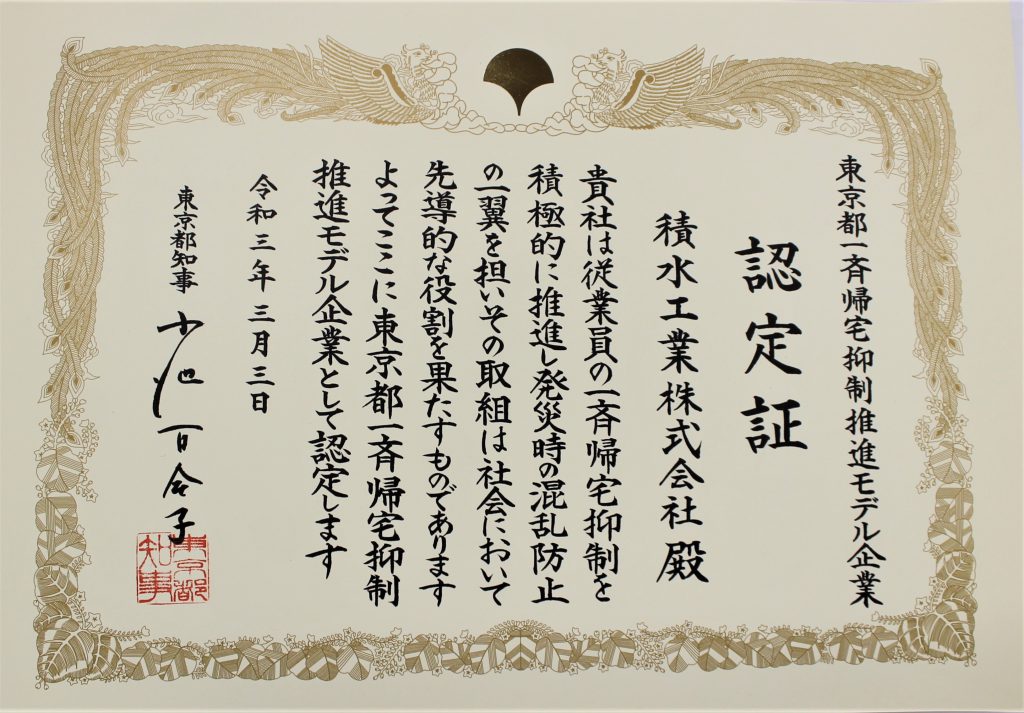 東京都一斉帰宅抑制推進モデル企業
認定証
積水工業株式会社殿
貴社は従業員の一斉帰宅抑制を
積極的に推進し発災時の混乱防止
の一翼を担いその取組は社会において
先導的な役割を果たすものであります
よってここに東京都一斉帰宅抑制
推進モデル企業として認定します
令和三年三月三日
東京都知事 小池百合子
東京都
知事